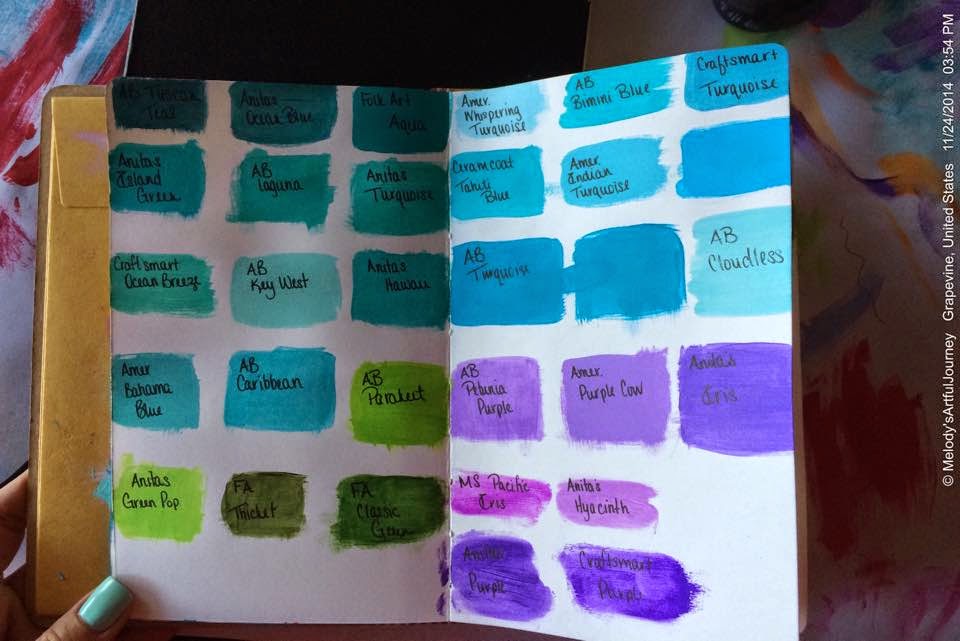 AB Tuscan
Teal
Anitas
Ocean Blue
Folk Art
Aqua
Anitas
Island
Green
AB
laguna
Anitas
Turquoise
Craftsmart
Ocean Breeze
AB
Key West
Anitas
Hawaii
Amer
Bahama
Blue
AB
Caribbean
AB
Parakeet
Anitas
Green Pop
FA
Thicket
FA
Classic
Green
Amer.
Whispering
Turquoise
AB
Bimini Blue
Craftsmart
Turquoise
Ceramcoat
Tahiti
Blue
Amer.
Indian
Turquoise
AB
Turquoise
AB
Cloudless
AB
Petunia
Purple
Amer.
Purple Cow
Anita's
Iris
MS Pacific
Iris
Anita's
Hyacinth
Anitas
Purple
Craftsmart
Purple
© Melody'sArtfulJourney Grapevine, United States 11/24/2014 03:54 PM